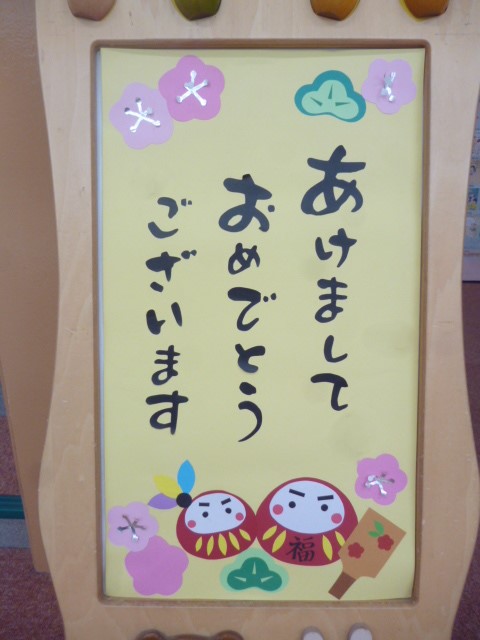 あけまして
おめでとう
ございます
福